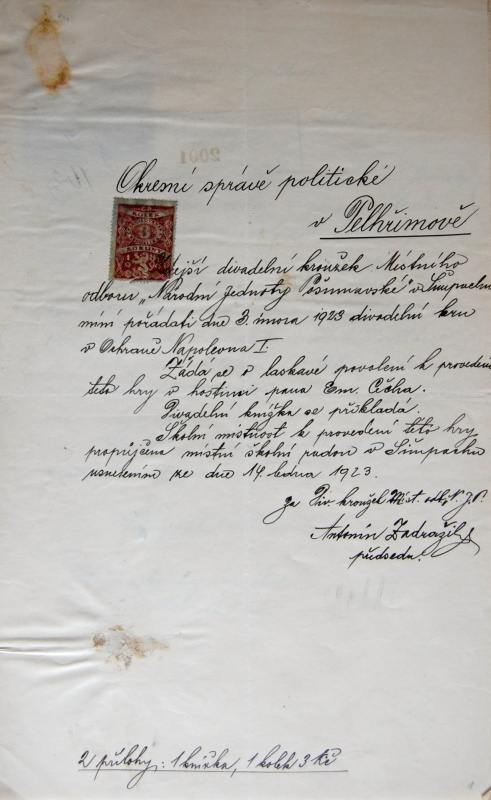 Okresní správě politické
v Pelhřimově
divadelní kroužek Místního
odboru „Národní Jednoty Pošumavské" v
míní pořádati dne 3. února 1923 divadelní hru
v Ochraně Napoleona I.
Žádá se o laskavé povolení k provedení
této hry v hostinci pana Em. Čecha.
Divadelní knížka se přikládá.
Školní místnost k provedení této hry
propůjčena místní školní radou v
usnesením ze dne 14. ledna 1923.
za Div. kroužek Míst. odb. N. J. P.
Antonín Zadražil
předseda.
2 přílohy: 1 knížka, 1 kolek 3 Kč